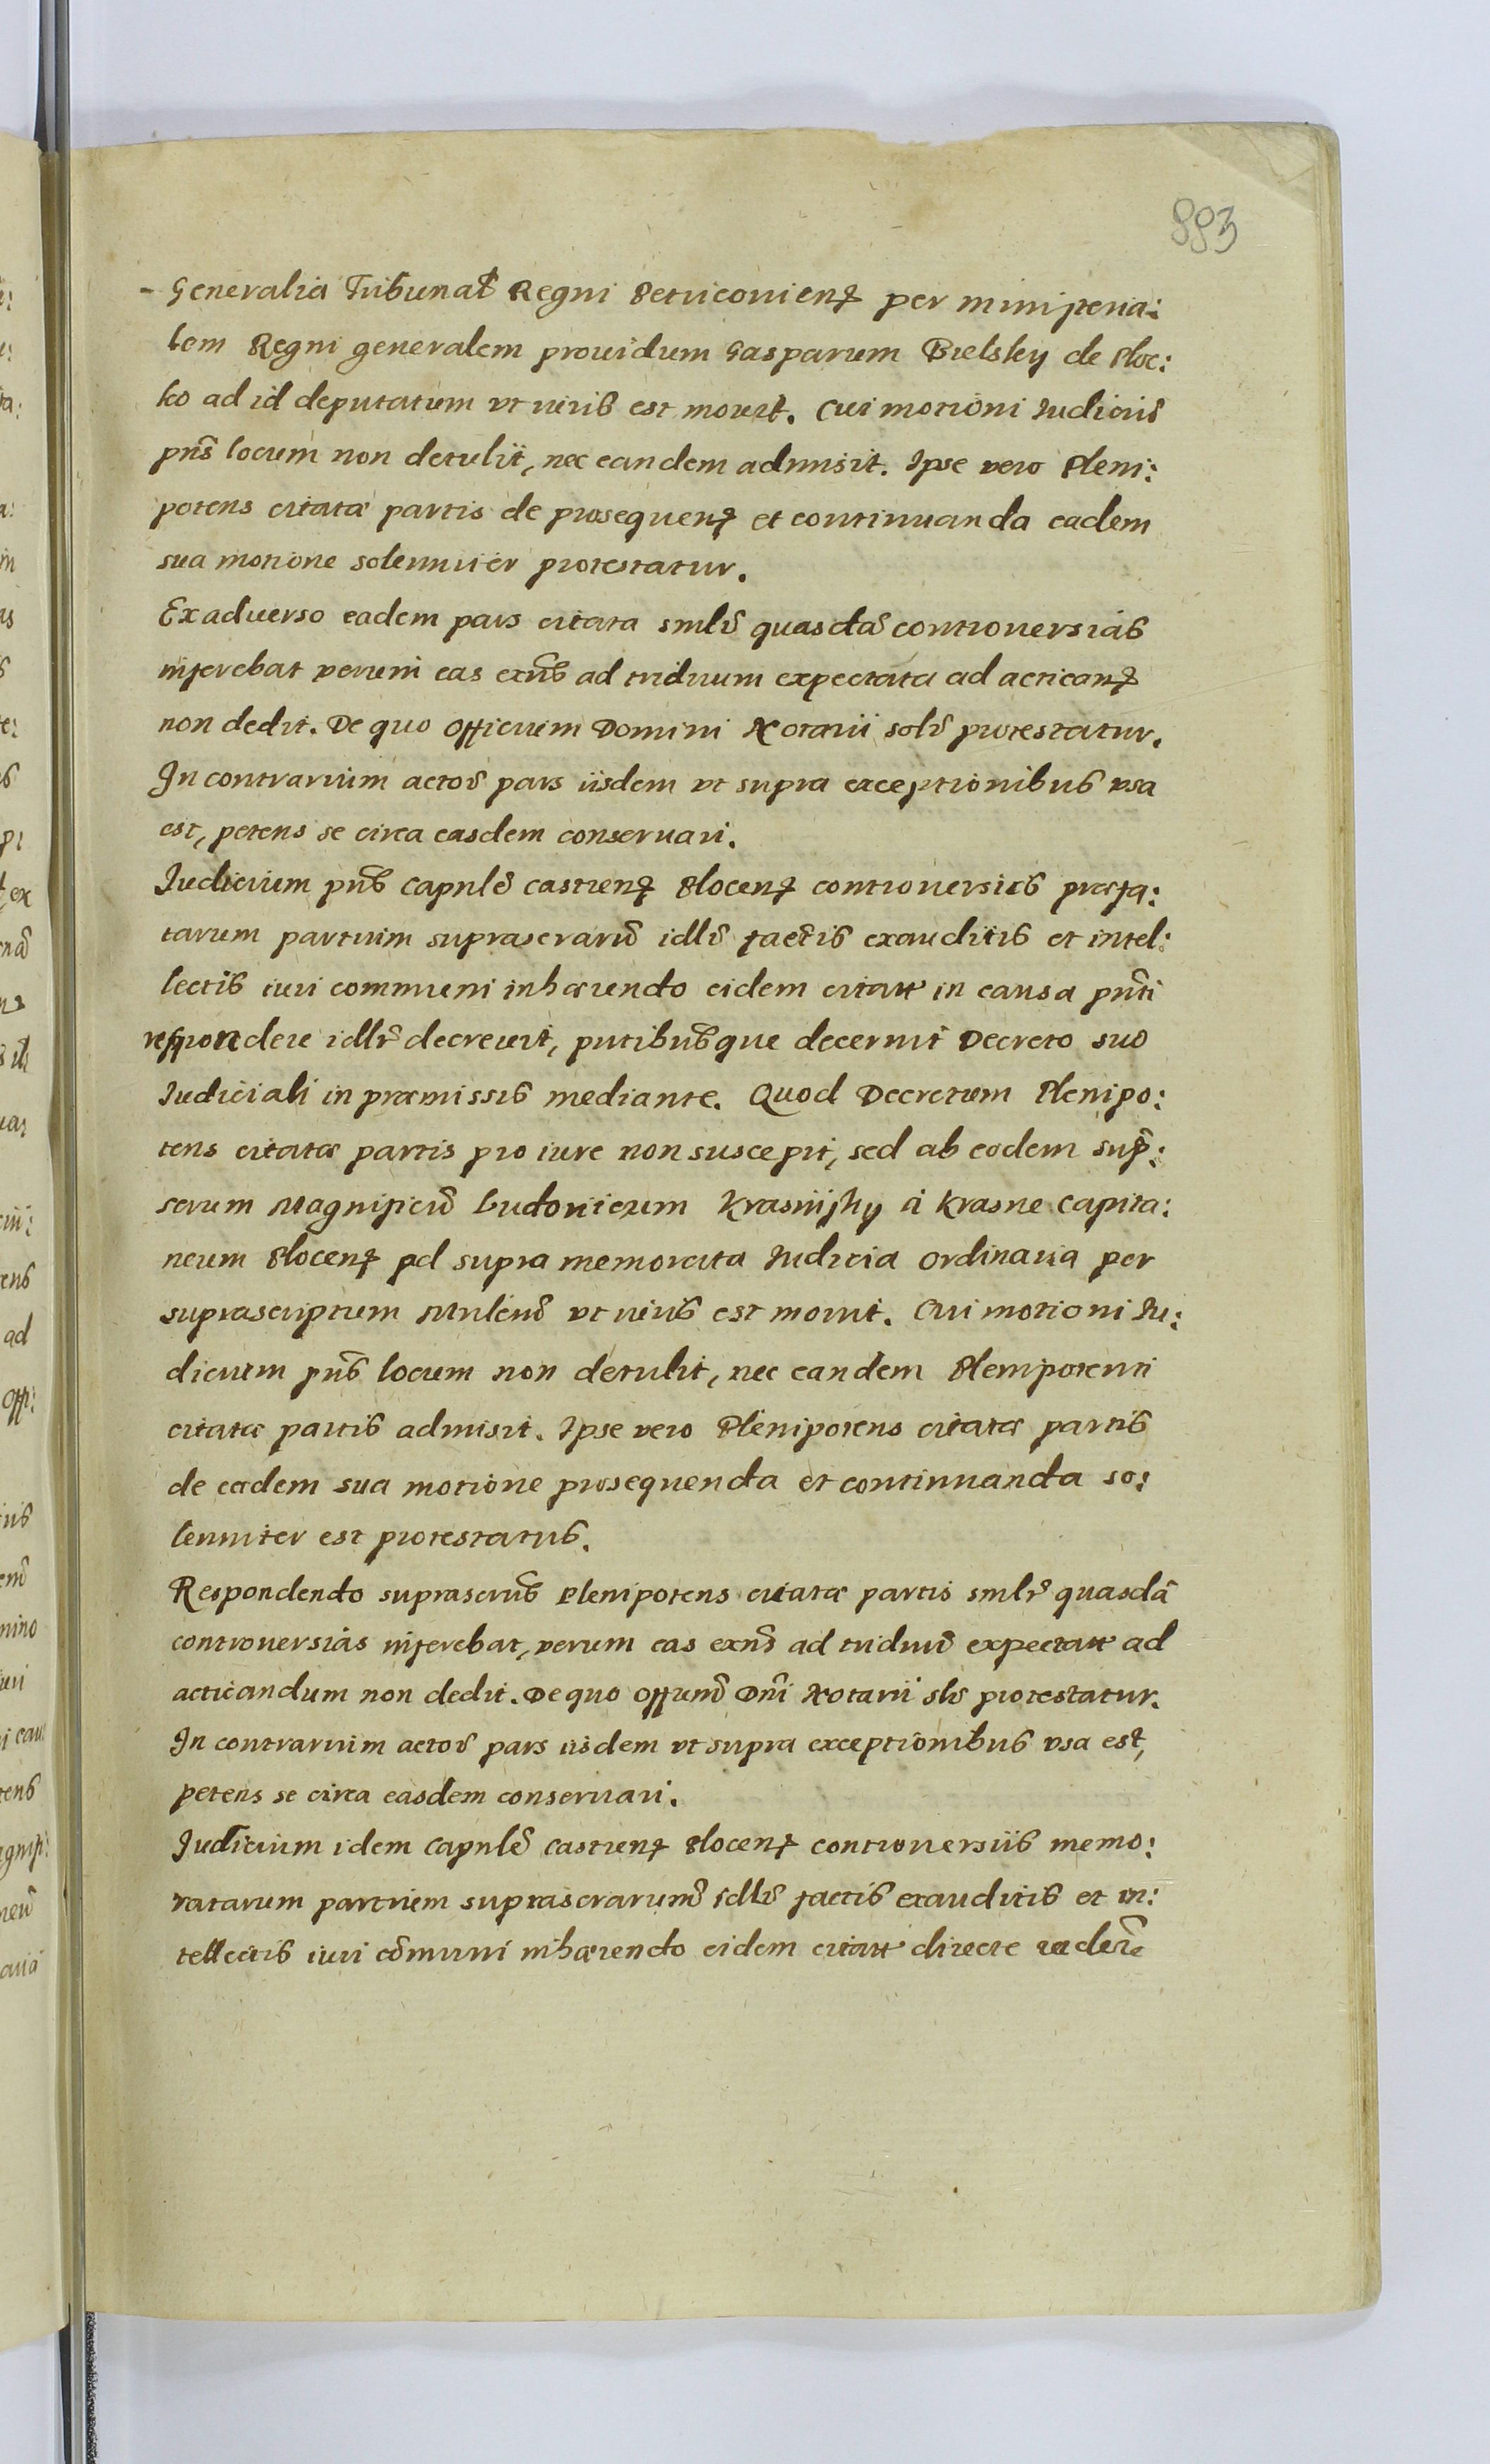 883
- Generalia Tribunal Regni Petricovien per ministeria:
lem Regni generalem prouidum Gasparum Bielsky de Ploc:
ko ad id deputatum vt iuris est mouit. Cui motioni Iudiciu
pns locum non detulit, nec eandem admisit. Ipse vero Pleni:
potens citatæ partis de prosequen et continuanda eadem
sua motione solenniter protestatur.
Ex aduerso eadem pars citata smlr quasdā controuersias
inferebat verum eas exns ad triduum expectata ad actican
non dedit. De quo Officium Domini Notarii solr protestatur.
In contrarium actor pars iisdem vt supra exceptionibus vsa
est, petens se circa easdem conseruari.
Iudicium pns Capnle castren Plocen controuersiis præfa:
tarum partium suprascrarū idlr factis exauditis et intel:
lectis iuri communi inhærendo eidem citatæ in causa pnti
respondere idlr decreuit, putibusque decernit Decreto suo
Iudiciali in præmissis mediante. Quod Decretum Plenipo:
tens citatæ partis pro iure non suscepit, sed ab eodem sup:
scrum Magnificū Ludouicum Krasinsky à Krasne Capita:
neum Plocen ad supra memorata Iudicia Ordinaria per
suprascriptum Mnlem vt iuris est mouit. Cui motioni Iu:
dicium pns locum non detulit, nec eandem Plenipotenti
citatæ partis admisit. Ipse vero Plenipotens citatæ partis
de eadem sua motione prosequenda et continuanda so:
lenniter est protestatus.
Respondendo suprascrus Plenipotens citatæ partis smlr quasdā
controuersias inferebat, verum eas exns ad triduū expectatæ ad
acticandum non dedit. De quo Offium Dni Notarii slr protestatur.
In contrarium actor pars iisdem vt supra exceptionibus vsa est,
petens se circa easdem conseruari.
Iudicium idem Capnle Castren Plocen controuersiis memo:
ratarum partium suprascrarum idlr factis exauditis et in:
tellectis iuri cōmuni inhærendo eidem citatæ directe